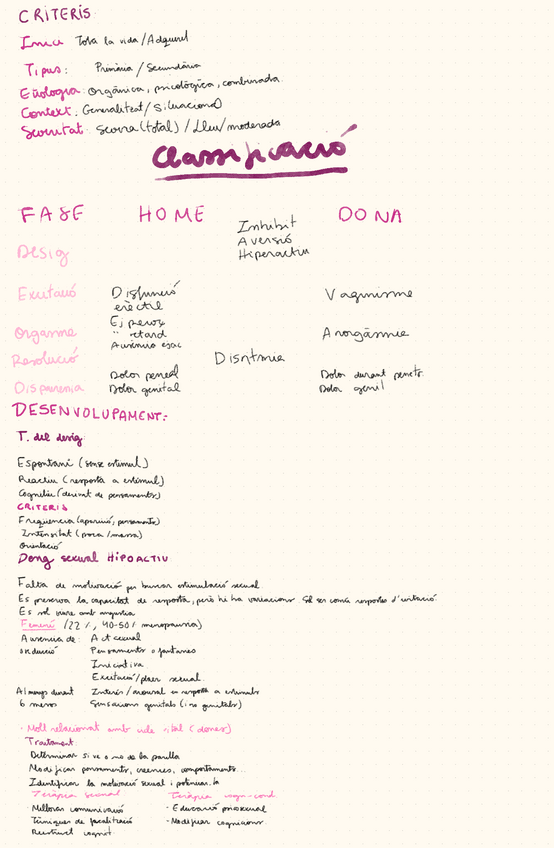 CRITERIS
Inici Tota la vida / Adquirit
Tipus: Primària / Secundària
Etiologia: Orgànica, psicològica, combinada
Context: Generalitzat / Situacional
Severitat: Severa (total) / Lleu/moderada
Classificació
FASE HOME DONA
Desig Inhibit
Aversió
Hiperactiu
Excitació Disfunció Vaginisme
erèctil
Ej precoç
Orgasme " retard Anorgàsmia
Absència ejac
Resolució Disritmia
Dolor peneal Dolor durant penetr.
Dispareunia Dolor genital Dolor genit
DESENVOLUPAMENT:
T. del desig
Espontani (sense estimul)
Reactiu (resposta a estimul)
Cognitiu (derivat de pensaments)
CRITERIS
Freqüencia (aparició, pensaments)
Intensitat (poca/massa)
Orientació
Desig sexual HIPOACTIU
Falta de motivació per buscar estimulació sexual
Es preserva la capacitat de resposta, però hi ha variacions Sol ser comú respostes d'evitació
Es sol viure amb angustia
Femení (22%, 40-50% menopausia)
Ausencia de: Act sexual
o reducció Pensaments o fantasies
Iniciativa
Excitació/plaer sexual
Almenys durant Interès/arousal en resposta a estimuls
6 mesos Sensacions genitals (i no genitals)
· Molt relacionat amb cicle vital (dones)
Tractament:
Determinar si ve o no de la parella
Modificar pensaments, creences, comportaments...
Identificar la motivació sexual i potenciar-la
Teràpia sexual Teràpia cogn-cond.
· Millorar comunicació · Educació psicosexual
Tècniques de focalització · Modificar cognicions
Reestruct cognit.